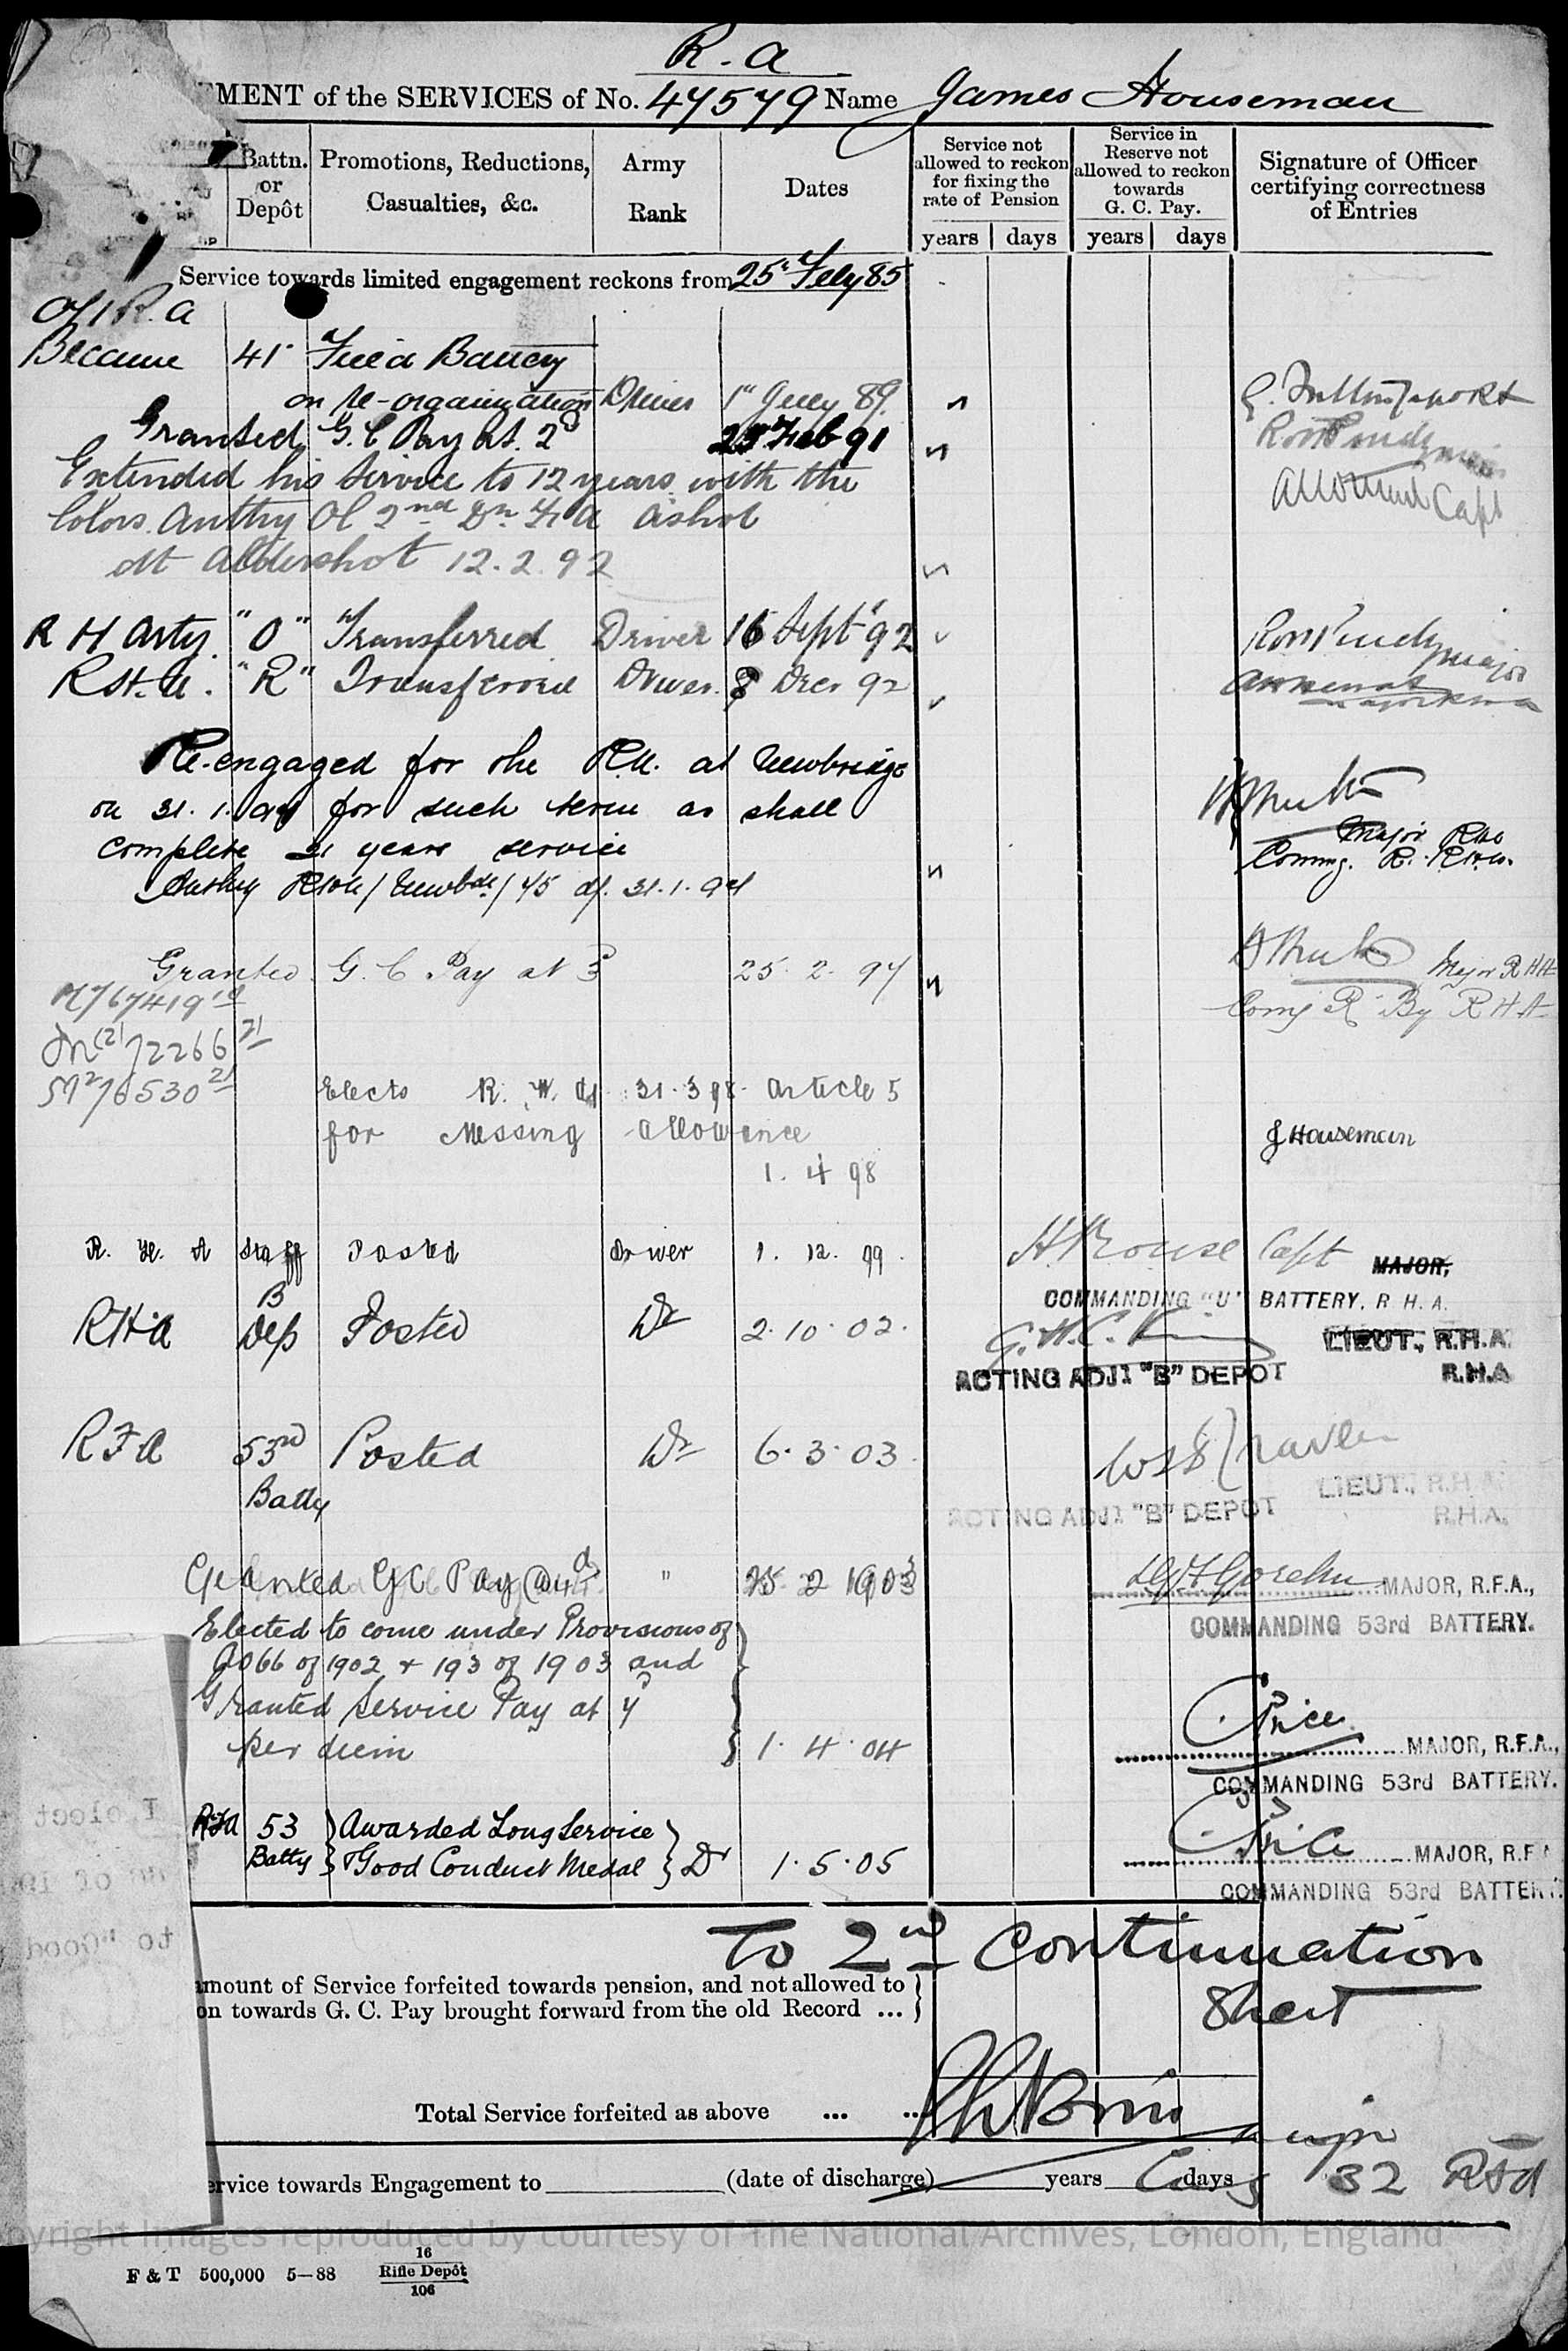 R. A
MENT of the SERVICES of No. 47579 Name James Houseman
Battn. or Depôt
Promotions, Reductions, Casualties, &c.
Army Rank
Dates
Service not allowed to reckon for fixing the rate of Pension
years days
Service in Reserve not allowed to reckon towards G. C. Pay.
years days
Signature of Officer certifying correctness of Entries
Service towards limited engagement reckons from 25th Feby 85
R. A
Became 41st Field Battery
on re-organization Driver 1st July 89
Granted G. C Pay at 2d 25 Feb 91
Extended his Service to 12 years with the
Colors. Authy 2nd Dn
at Aldershot 12.2.92
Capt
R H Arty. "O" Transferred Driver 16 Sept 92
Major
R.H.A. "R" Transferred Driver. 8 Decr 92
Re-engaged for the R.A. at Newbridge
on 31.1.94 for such term as shall
complete 21 years service
Authy 31.1.94
Major RHA
Commg. R. R.H.A.
Granted G. C Pay at 3d 25. 2. 97
Major R H A
Comg R By R H A
Elects R. W. 31.3.98. Article 5
for Messing Allowance
1. 4 98
J Houseman
R. H. A Staff Posted Driver 1. 12. 99.
Capt MAJOR,
COMMANDING "U" BATTERY. R H. A.
RHA B Dep Posted Dr 2.10.02.
LIEUT., R.H.A.
ACTING ADJT "B" DEPOT R.H.A
RFA 53rd Posted Dr 6.3.03.
Batty
LIEUT., R.H.A.
ACTING ADJT "B" DEPOT R.H.A.
Granted GC Pay @ 4d " 25 2 1903
MAJOR, R.F.A.,
COMMANDING 53rd BATTERY.
Elected to come under Provisions of
AO 66 of 1902 & 193 of 1903 and
Granted Service Pay at
per diem 1. 4. 04
Price MAJOR, R.F.A.,
COMMANDING 53rd BATTERY.
RFA 53 Awarded Long Service
Batty & Good Conduct Medal Dr 1.5.05
Price MAJOR, R.F.A
COMMANDING 53rd BATTERY.
To 2nd Continuation
Sheet
amount of Service forfeited towards pension, and not allowed to
on towards G. C. Pay brought forward from the old Record ...
Total Service forfeited as above ... ...
ervice towards Engagement to (date of discharge) years days
32
opyright images reproduced by courtesy of The National Archives, London, England
F & T 500,000 5—88
16
Rifle Depôt
106